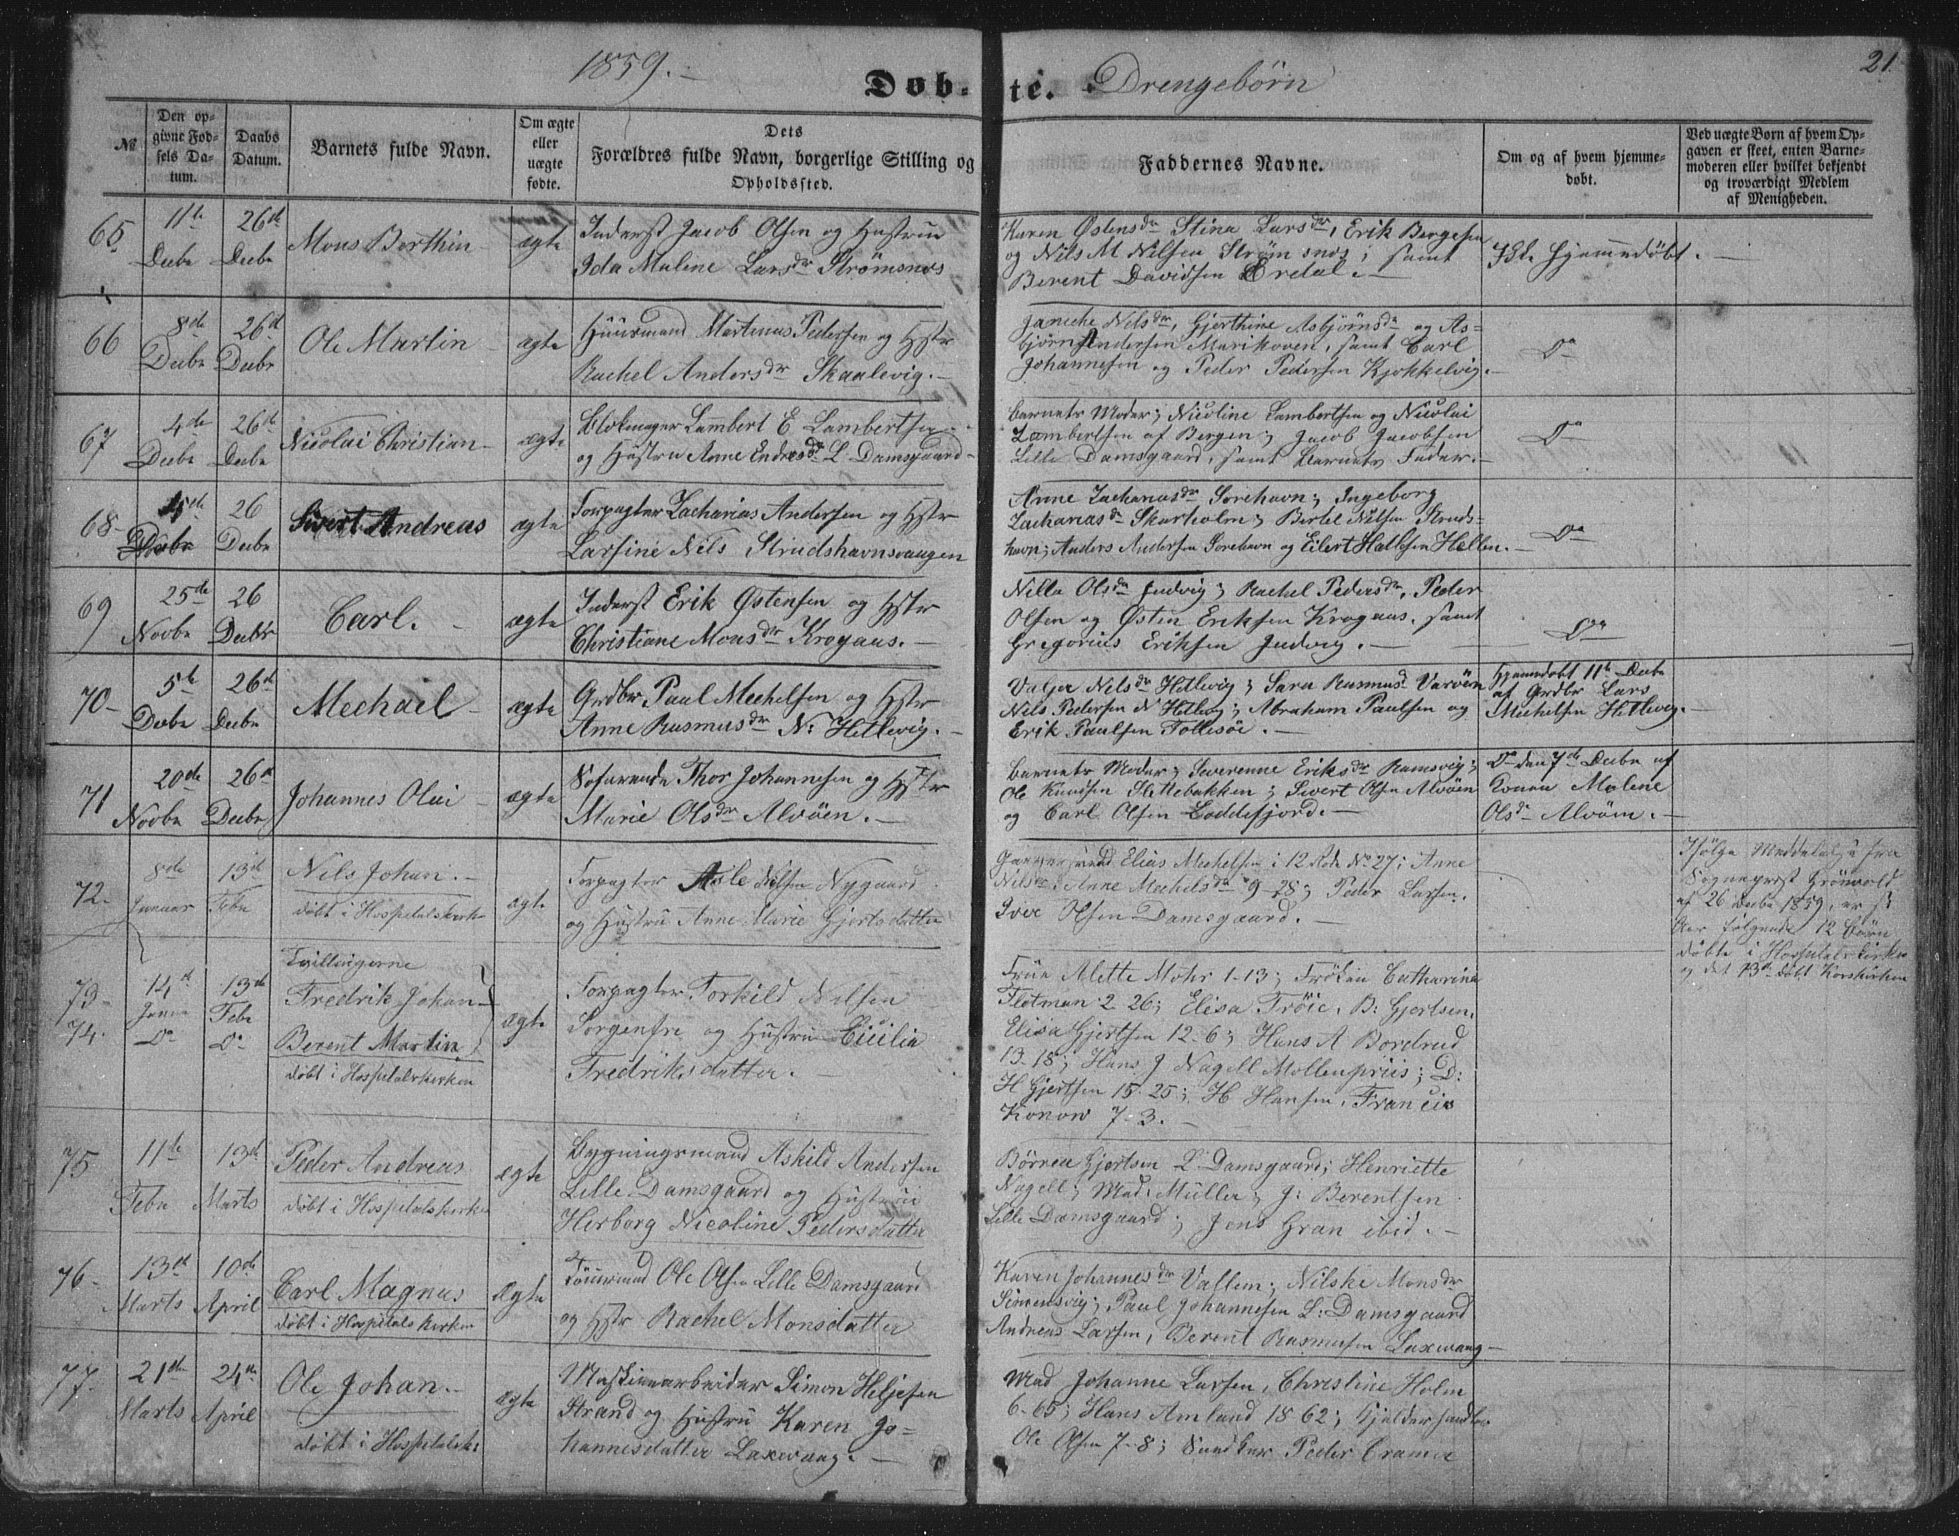 1859.-
Døb-te. Drengebørn
21
№
Den op-
givne Fød-
sels Da-
tum.
Daabs
Datum.
Barnets fulde Navn.
Om ægte
eller
uægte
fødte.
Dets
Forældres fulde Navn, borgerlige Stilling og
Opholdssted.
Faddernes Navne.
Om og af hvem hjemme-
døbt.
Ved uægte Børn af hvem Op-
gaven er skeet, enten Barne-
moderen eller hvilket bekjendt
og troværdigt Medlem
af Menigheden.
65.
11te
Decbr
26de
Decbr
Mons Berthin
ægte
Inderst Jacob Olsen og Hustrue
Ida Malene Larsdr Strømsnæs
Karen Østensdr Stina Larsdr, Erik Bergesen
og Nils M Nilsen Strømsnæs; samt
Berent Davidsen Øredal.-
Hjemmedøbt.-
66
8de
Decbr
26de
Decbr
Ole Martin
ægte
Huusmand Martinus Pedersen og Hstr
Rachel Andersdr Skaalevig.-
Janiche Nilsdr, Gjerthine Asbjørnsdr og As=
bjørn Andersen Marikoven, samt Carl
Johannesen og Peder Pedersen Kjøkkelvig.-
Do
67
4de
Decbr
26de
Decbr
Nicolai Christian
ægte
Blokmager Lambert E. Lambertsen
og Hustru Anne Endresdr L. Damsgaard-
Barnets Moder; Nicoline Lambertsen og Nicolai
Lambertsen af Bergen; Jacob Jacobsen
Lille Damsgaard, samt Barnets Fader.-
Do
68-
Decbr
26
Decbr
Sivert Andreas
ægte
Forpagter Zacharias Andersen og Hstr
Larsine Nils Strudshavnsvaagen
Anne Zachariasdr Sorehavn; Ingeborg
Zachariasdr Skarholm; Bertel Nilsen Struds=
havn; Anders Andersen Sorehavn og Eilert Hallesen Hællen.-
Do
69
25de
Novbr
26
Decbr
Carl.-
ægte
Inderst Erik Østensen og Hstr
Christiane Monsdr Krogaas.-
Nille Olsdr Judvig; Rachel Pedersdr, Peder
Olsen og Østen Eriksen Krogaas, samt
Gregorius Eriksen Judvig.-
Do
70-
5te
Decbr
26de
Decbr
Mechail
ægte
Grdbr Paul Mechelsen og Hstr
Anne Rasmusdr N: Hetlevig.-
Valger Nilsdr Hetlevig; Sara Rasmusd Varøen
Nils Pedersen N Hetlevig; Abraham Paulsen og
Erik Paulsen Follesøe.-
Hjemmdøbt 11te Decbr
af Grdbr Lars
Mechelsen Hetlevig.-
71
20de
Novbr
26de
Decbr
Johannes Olai
ægte
Søfarende Thor Johannesen og Hstr
Marie Olsdr Alvøen.-
Barnets Moder; Severenne Eriksdr Ramsvig;
Ole Knudsen Hettebakken; Sivert Olsen Alvøen
og Carl Olsen Loddefjord.-
Do den 7de Decbr af
Konen Malene
Olsdr Alvøen.-
72.
8de
Januar
13de
Febr
Nils Johan.-
døbt i Hospitalskirken
ægte
Forpagter Asle Nilsen Nygaard
og Hustru Anne Marie Gjertsdatter
Elias Mechelsen i 12 Rode No 27; Anne
Nilsdr, Anne Mechelsdr 9-28; Peder Larsen.
Iver Olsen Damsgaard.-
Ifølge Meddelelse fra
Sogneprest Grønvold
af 26 Decbr 1859, er
følgende 12 Børn
døbte i Hospitalskirken
og det 13de døbt Korskirken
73-
74.
14de
Janr
Do
13de
Febr
Do
Tvillingerne
Fredrik Johan
Berent Martin
døbt i Hospitalskirken
ægte
Forpagter Torkild Nilsen
Sorgenfre og Hustru Cicilia
Fredriksdatter.-
Frue Alette Mohr 1-13; Frøken Catharina
Flotman 2-26; Elisa Trøie, B: Gjertsen.
Elisa Gjertsen 12-6; Hans A Bordrud
13-18; Hans J Nagell Mollenpriis; D:
H Gjertsen 15-25; H Hansen, Francis
Konow 7-3.-
75
11te
Febr
13de
Marts
Peder Andreas
døbt i Hospitalskirken
ægte
Bygningsmand Askild Andersen
Lille Damsgaard og Hustrue
Herborg Nicoline Pedersdatter
Børnea Gjertsen L. Damsgaard; Henriette
Nagell; Mad. Müller; J. Berentsen
Lille Damsgaard; Jens Gran ibid.-
76-
13de
Marts
10de
April
Carl Magnus
døbt i Hospitalskirken
ægte
Ole Olsen Lille Damsgaard
og Hstr Rachel Monsdatter
Karen Johannesdr Vallem; Nilske Monsdr
Simonsvig; Paul Johannesen L: Damsgaard
Andreas Larsen, Berent Rasmusen Laxevaag-
77-
21de
Marts
24de
April
Ole Johan.-
døbt i Hospitalsk.
ægte
Maskinearbeider Simon Heljesen
Strand og Hustru Karen Jo=
hannesdatter Laxevaag.-
Mad Johanne Larsen, Christine Holm
6-65; Hans Amlund 18-62;
Ole Olsen 7-8; Peder Cramer